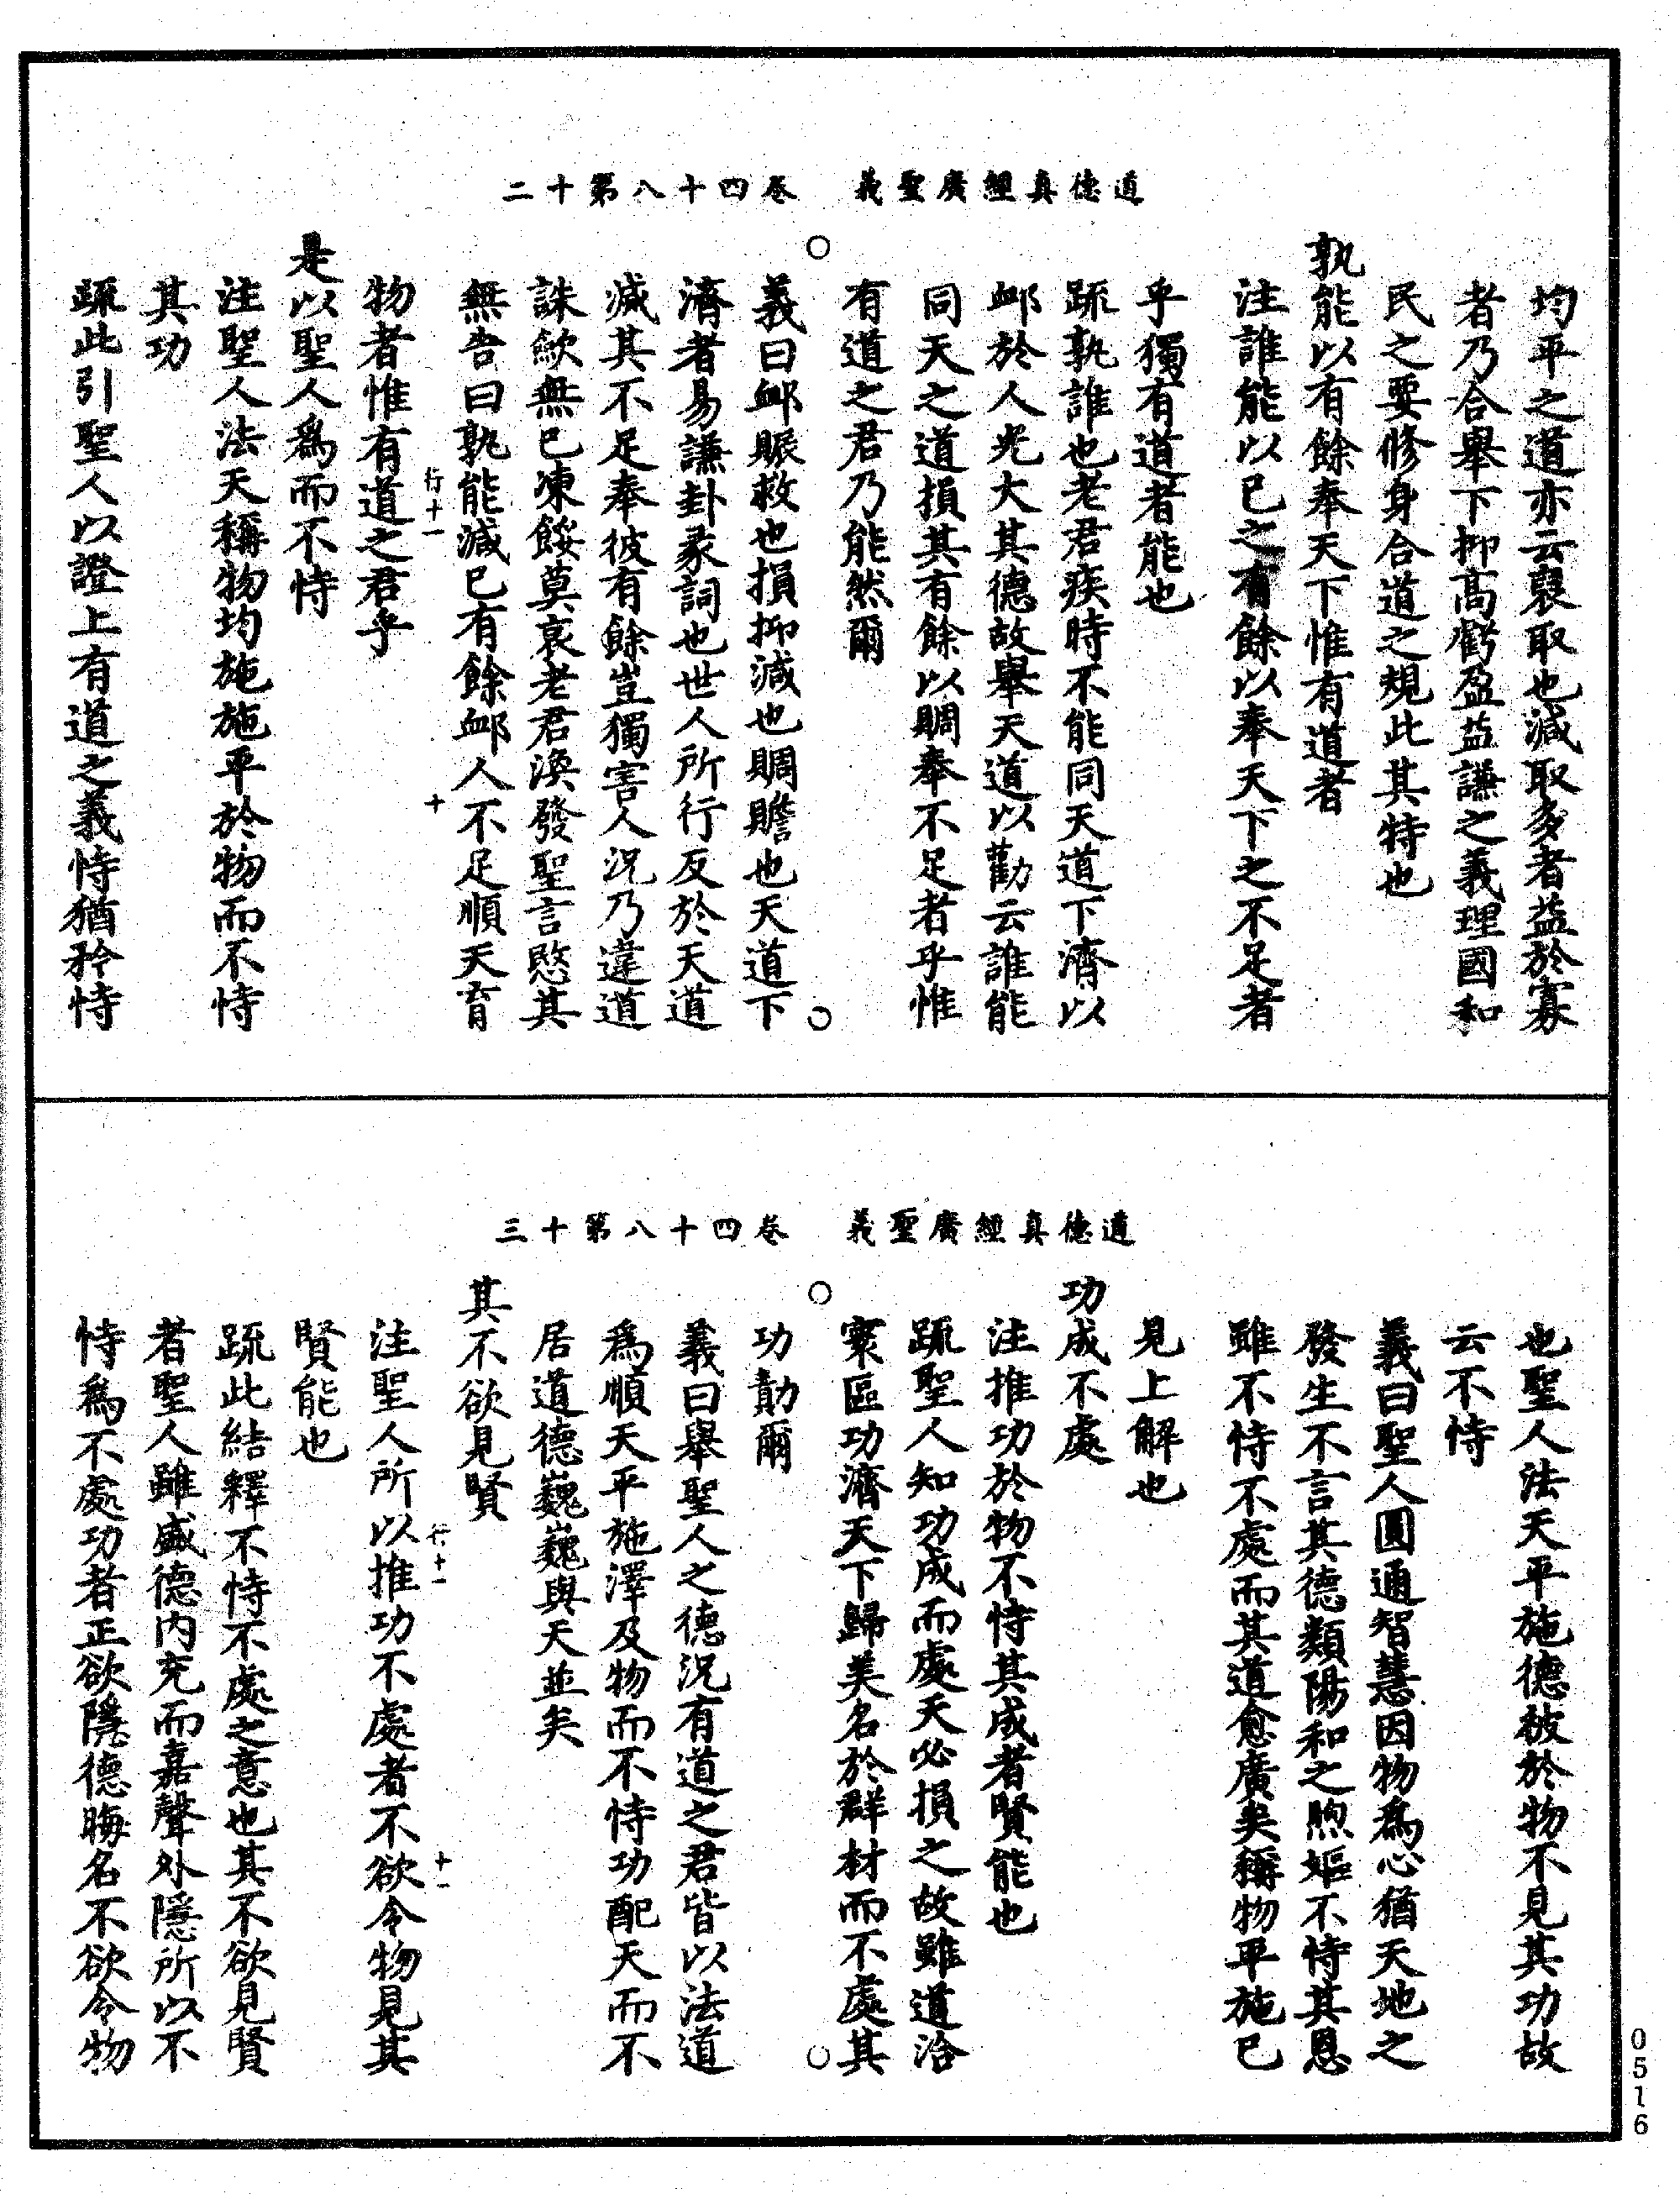 道德真經廣聖義　卷四十八第十二
均平之道亦云裒取也減取多者益於寡
者乃合舉下抑高虧盈益謙之義理國和
民之要修身合道之規此其特也
孰能以有餘奉天下惟有道者
注誰能以已之有餘以奉天下之不足者
乎獨有道者能也
疏孰誰也老君疾時不能同天道下濟以
卹於人光大其德故舉天道以勸云誰能
同天之道損其有餘以賙奉不足者乎惟
有道之君乃能然爾
義曰卹賑救也損抑減也賙贍也天道下
濟者易謙卦彖詞也世人所行反於天道
減其不足奉彼有餘豈獨害人況乃違道
誅歛無已凍餒莫哀老君渙發聖言愍其
無告曰孰能減已有餘卹人不足順天育
行十一　十
物者惟有道之君乎
是以聖人爲而不恃
注聖人法天稱物均施施平於物而不恃
其功
疏此引聖人以證上有道之義恃猶矜恃
道德真經廣聖義　卷四十八第十三
也聖人法天平施德被於物不見其功故
云不恃
義曰聖人圓通智慧因物爲心猶天地之
發生不言其德類陽和之煦嫗不恃其恩
雖不恃不處而其道愈廣矣稱物平施已
見上解也
功成不處
注推功於物不恃其成者賢能也
疏聖人知功成而處天必損之故雖道洽
寰區功濟天下歸美名於群材而不處其
功勣爾
義曰舉聖人之德況有道之君皆以法道
爲順天平施澤及物而不恃功配天而不
居道德巍巍與天並矣
其不欲見賢
行十一　十一
注聖人所以推功不處者不欲令物見其
賢能也
疏此結釋不恃不處之意也其不欲見賢
者聖人雖盛德內充而嘉聲外隱所以不
恃爲不處功者正欲隱德晦名不欲令物
0516